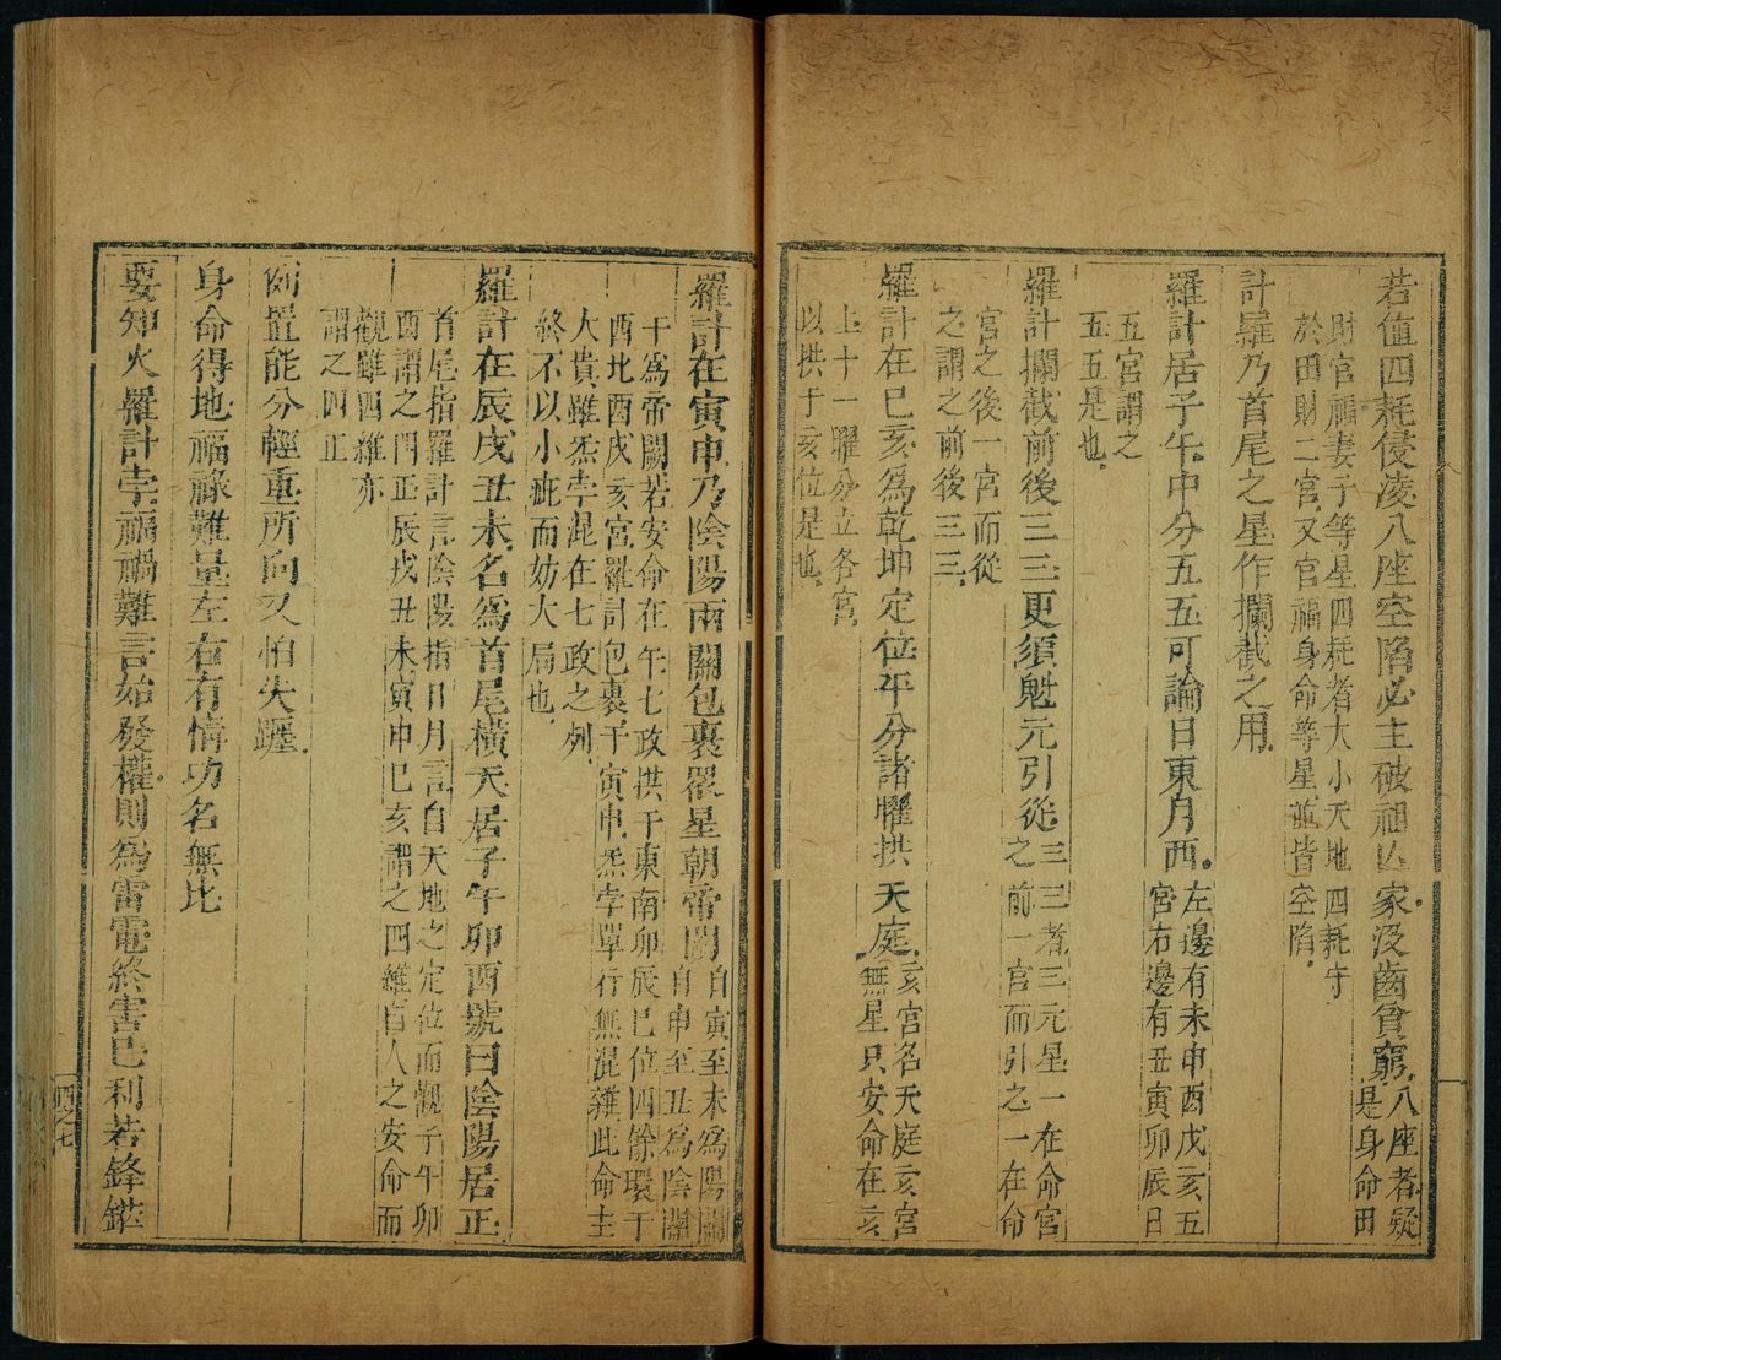 若值四耗侵凌八座空陷必主破祖亡家沒齒貧窮八座者疑
是身命田
財官福妻子等星四耗者大小天地四耗守
於田財二宮又官福身命等星並皆空陷
計羅乃首尾之星作攔截之用
羅計居子午中分五五可論日東月西左邊有未申酉戌亥五
宮右邊有丑寅卯辰日
五宮謂之
五五是也
羅計攔截前後三三更須魁元引從三三者三元星一在命宮
之前一宮而引之一在命
宮之後一宮而從
之謂之前後三三
羅計在巳亥為乾坤定位平分諸曜拱天庭亥宮名天庭亥宮
無星只安命在亥
上十一曜分立各宮
以拱于亥位是也
羅計在寅申乃陰陽兩關包裹眾星朝帝闕自寅至未為陽關
自申至丑為陰關
午為帝闕若安命在午七政拱于東南卯辰巳位四餘環于
酉北酉戌亥宮羅計包裹于寅申炁孛單行無混雜此命主
大貴雖炁孛混在七政之列
終不以小疵而妨大局也
羅計在辰戌丑未名為首尾橫天居子午卯酉號曰陰陽居正
首尾指羅計言陰陽指日月言自天地之定位而觀子午卯
酉謂之四正辰戌丑未寅申巳亥謂之四維自人之安命而
觀雖四維亦
謂之四正
倒置能分輕重所向又怕失躔
身命得地福祿難量左右有情功名無比
要知火羅計孛禍福難言始發權則為雷電終害已利若鋒鋩
四之七